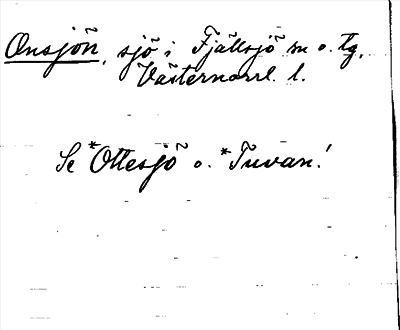 Onsjön, sjö i Fjällsjö sn o. tg,
Västernorrl. l.
Se *Ottesjö o. *Tuvan!